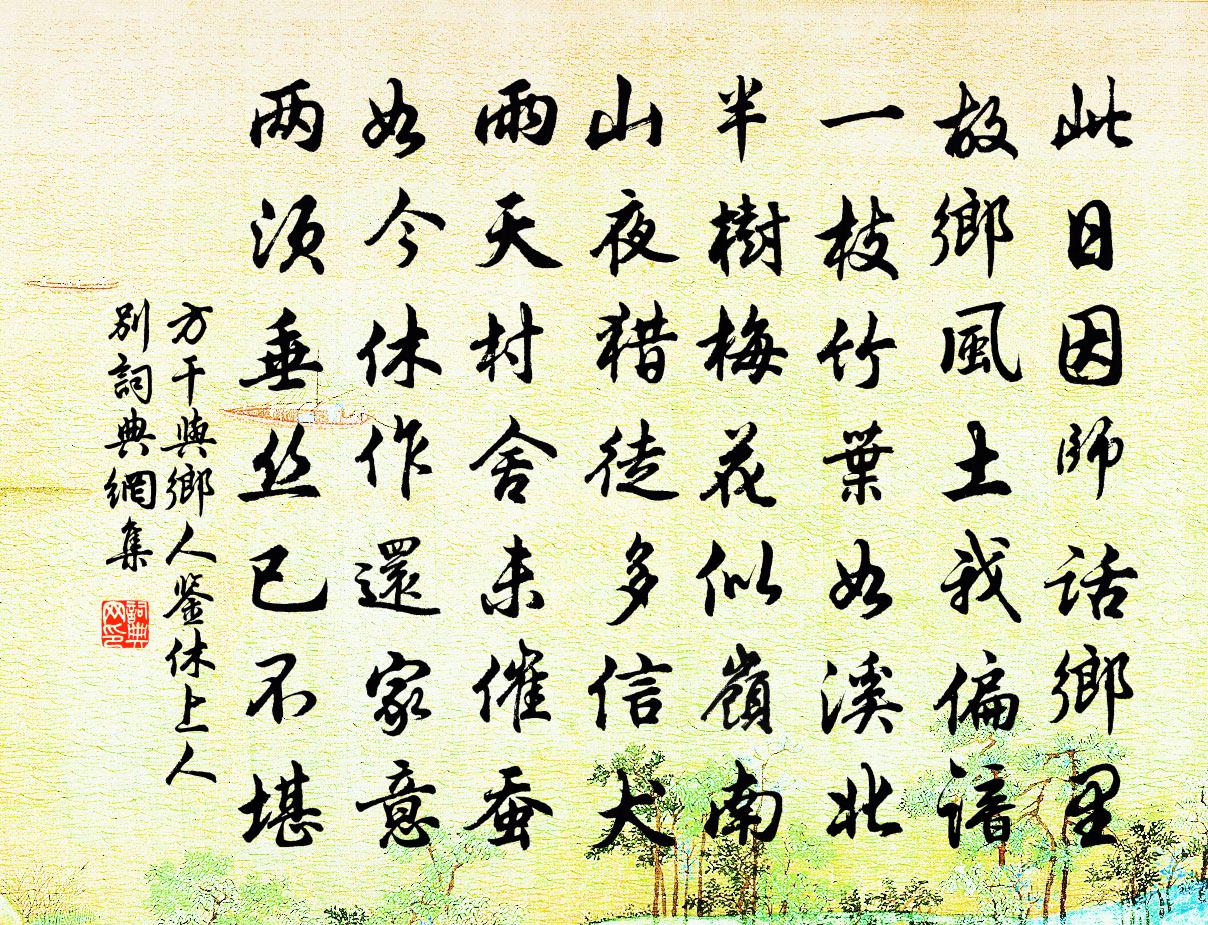 此日因師話鄉里
故鄉風土我偏諳
一枝竹葉如溪北
半樹梅花似嶺南
山夜猎徒多信犬
雨天村舍未催蚕
如今休作還家意
两須垂丝已不堪
方干與鄉人鉴休上人
别詞典網集
詞典网印